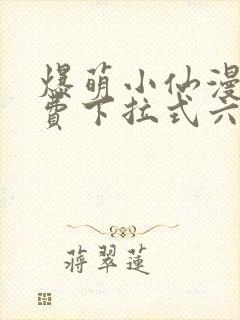 爆萌小仙漫
费下拉式六
蔣翠蓮